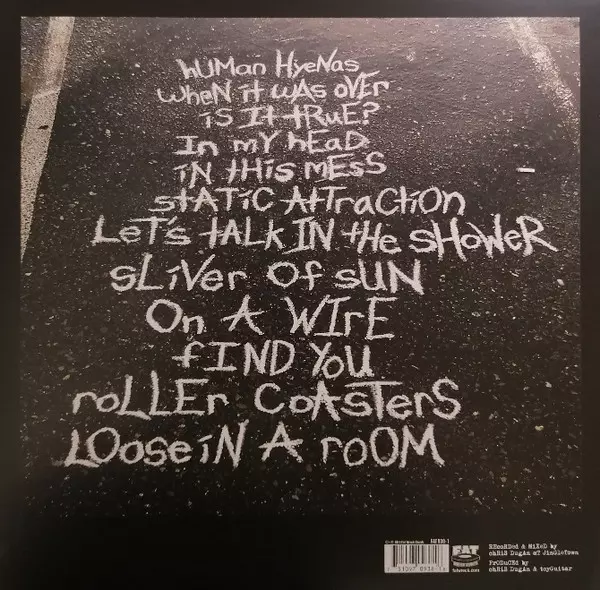 hUMan HyeNas
wheN it wAs ovEr
iS It tRuE?
In mY hEaD
iN tHis mESS
stATiC AtTracTiON
LeT's tALK IN tHe sHoWeR
sLiVer Of sUN
On A WIrE
fIND YoU
roLLEr CoAsTerS
LOose iN A roOM
FAT
REcoRDed & MiXeD by
chRiS DugAn aT JinGleTown
PrODuCEd by
chRiS DugAn & toyGuitar